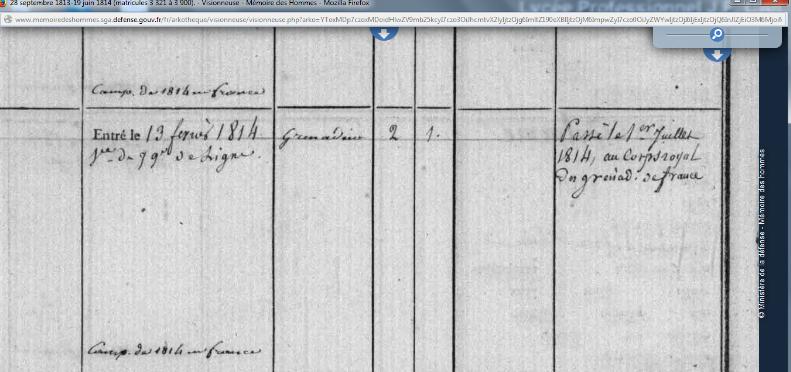 28 septembre 1813-19 juin 1814 (matricules 3 321 à 3 900). - Visionneuse - Mémoire des Hommes - Mozilla Firefox
www.memoiredeshommes.sga.defense.gouv.fr/fr/arkotheque/visionneuse/visionneuse.php?arko=
Lycée Professionnel
Camp. de 1814 en france
Entré le 13 fevrier 1814
Grenadier
2
1.
Passé le 1er Juillet
Vt. du 79e de Ligne.
1814, au Corps royal
des grenad. de france
Camp. de 1814 en france
© Ministère de la défense - Mémoire des hommes